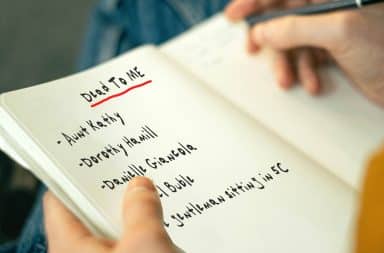 Dead To ME
- Aunt Kathy
- Dorothy Hamill
- Danielle Giancola
el Buble
gentleman sitting in 5C